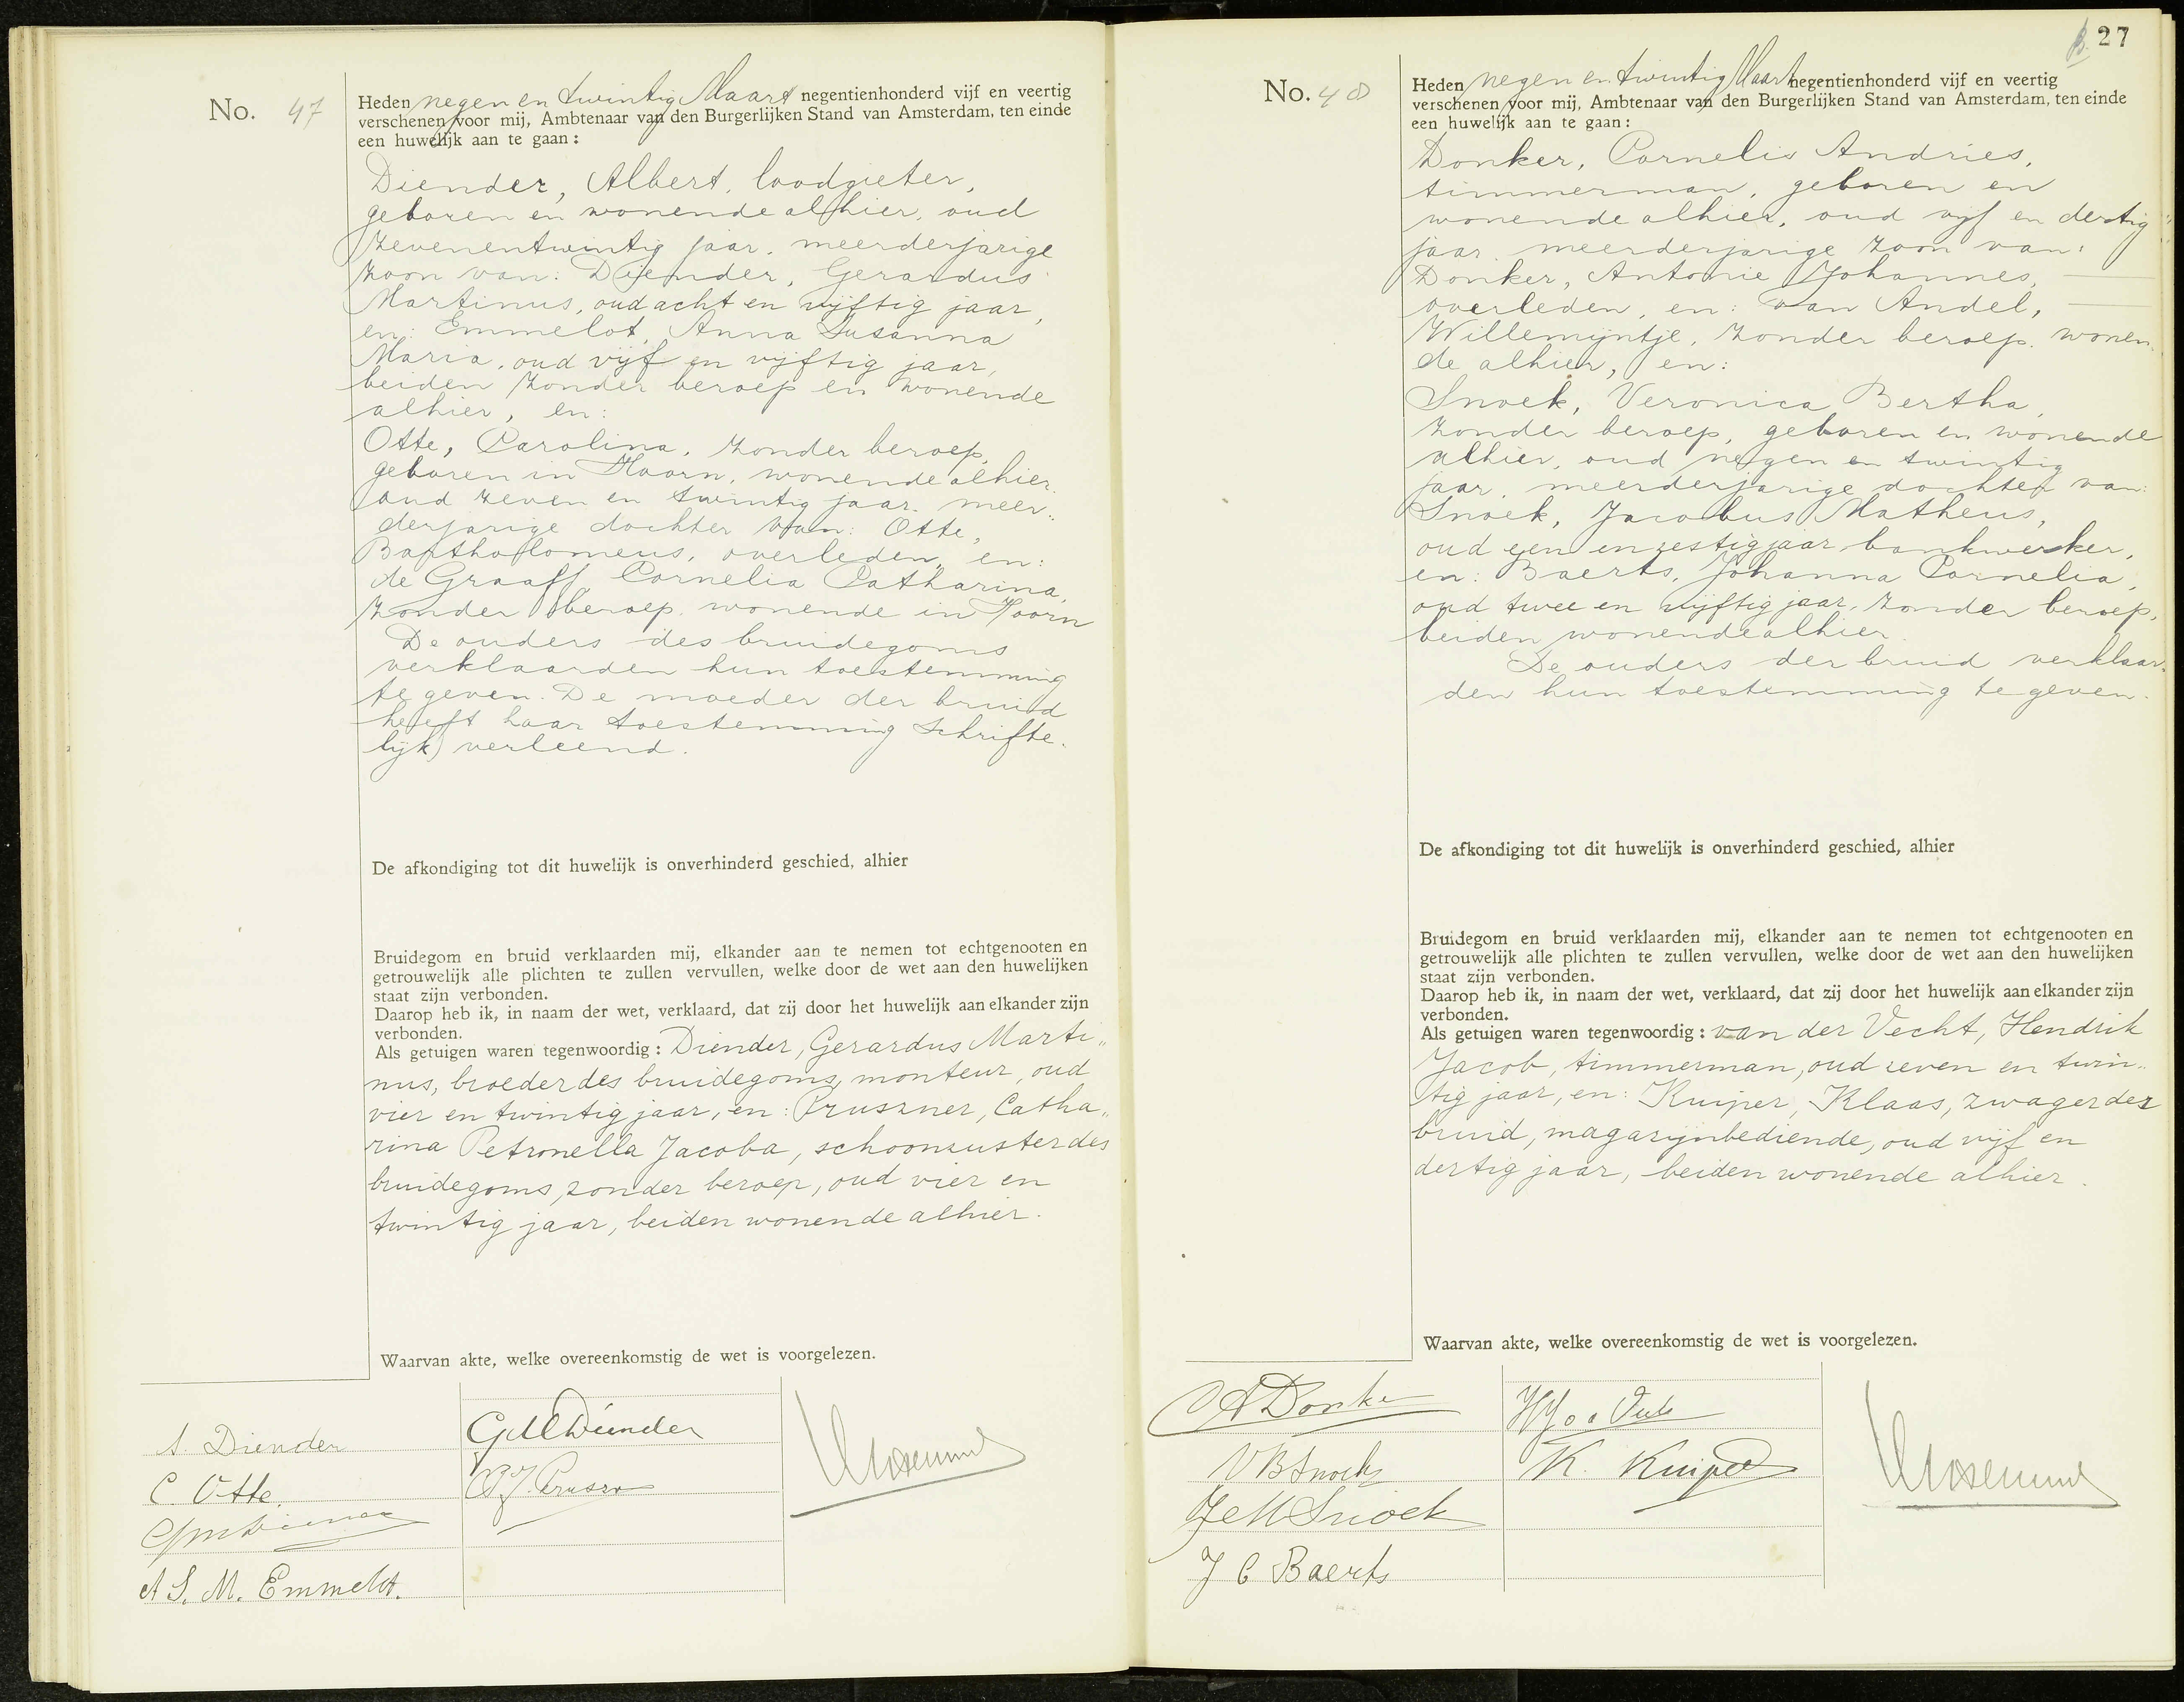 No. 47
Heden negen en twintig Maart negentienhonderd vijf en veertig
verschenen voor mij, Ambtenaar van den Burgerlijken Stand van Amsterdam, ten einde
een huwelijk aan te gaan:
Diender, Albert, loodgieter,
geboren en wonende alhier, oud
zevenentwintig jaar, meerderjarige
zoon van: Diender, Gerardus
Martinus, oud acht en vijftig jaar,
en: Emmelot, Anna Susanna
Maria, oud vijf en vijftig jaar,
beiden zonder beroep en wonende
alhier, en:
Otte, Carolina, zonder beroep,
geboren in Hoorn, wonende alhier
oud zeven en twintig jaar, meer„
derjarige dochter van: Otte,
Bartholomeus, overleden, en:
de Graaff, Cornelia Catharina,
zonder beroep, wonende in Hoorn
De ouders des bruidegoms
verklaarden hun toestemming
te geven. De moeder der bruid
heeft haar toestemming schrifte„
lijk verleend.
De afkondiging tot dit huwelijk is onverhinderd geschied, alhier
Bruidegom en bruid verklaarden mij, elkander aan te nemen tot echtgenooten en
getrouwelijk alle plichten te zullen vervullen, welke door de wet aan den huwelijken
staat zijn verbonden.
Daarop heb ik, in naam der wet, verklaard, dat zij door het huwelijk aan elkander zijn
verbonden.
Als getuigen waren tegenwoordig: Diender, Gerardus Marti„
nus, broeder des bruidegoms, monteur, oud
vier en twintig jaar, en: Pruszner, Catha„
rina Petronella Jacoba, schoonzuster des
bruidegoms, zonder beroep, oud vier en
twintig jaar, beiden wonende alhier.
Waarvan akte, welke overeenkomstig de wet is voorgelezen.
A. Diender
C. Otte.
GM Diender
A S. M. Emmelot.
GM Diender
27
No. 48
Heden negen en twintig Maart negentienhonderd vijf en veertig
verschenen voor mij, Ambtenaar van den Burgerlijken Stand van Amsterdam, ten einde
een huwelijk aan te gaan:
Donker, Cornelis Andries,
timmerman, geboren en
wonende alhier, oud vijf en dertig
jaar, meerderjarige zoon van:
Donker, Antonie Johannes,
overleden, en: van Andel,
Willemijntje, zonder beroep, wonen„
de alhier, en:
Snoek, Veronica Bertha,
zonder beroep, geboren en wonende
alhier, oud negen en twintig
jaar, meerderjarige dochter van:
Snoek, Jacobus Matheus,
oud een en zestig jaar bankwerker,
en: Baerts, Johanna Cornelia,
oud twee en vijftig jaar, zonder beroep,
beiden wonende alhier.
De ouders der bruid verklaar„
den hun toestemming te geven.
De afkondiging tot dit huwelijk is onverhinderd geschied, alhier
Bruidegom en bruid verklaarden mij, elkander aan te nemen tot echtgenooten en
getrouwelijk alle plichten te zullen vervullen, welke door de wet aan den huwelijken
staat zijn verbonden.
Daarop heb ik, in naam der wet, verklaard, dat zij door het huwelijk aan elkander zijn
verbonden.
Als getuigen waren tegenwoordig: van der Vecht, Hendrik
Jacob, timmerman, oud zeven en twin„
tig jaar, en: Kuijper, Klaas, zwager der
bruid, magazijnbediende, oud vijf en
dertig jaar, beiden wonende alhier.
Waarvan akte, welke overeenkomstig de wet is voorgelezen.
CA Donker
VB Snoek
J M Snoek
J C Baerts
K. Kuijper